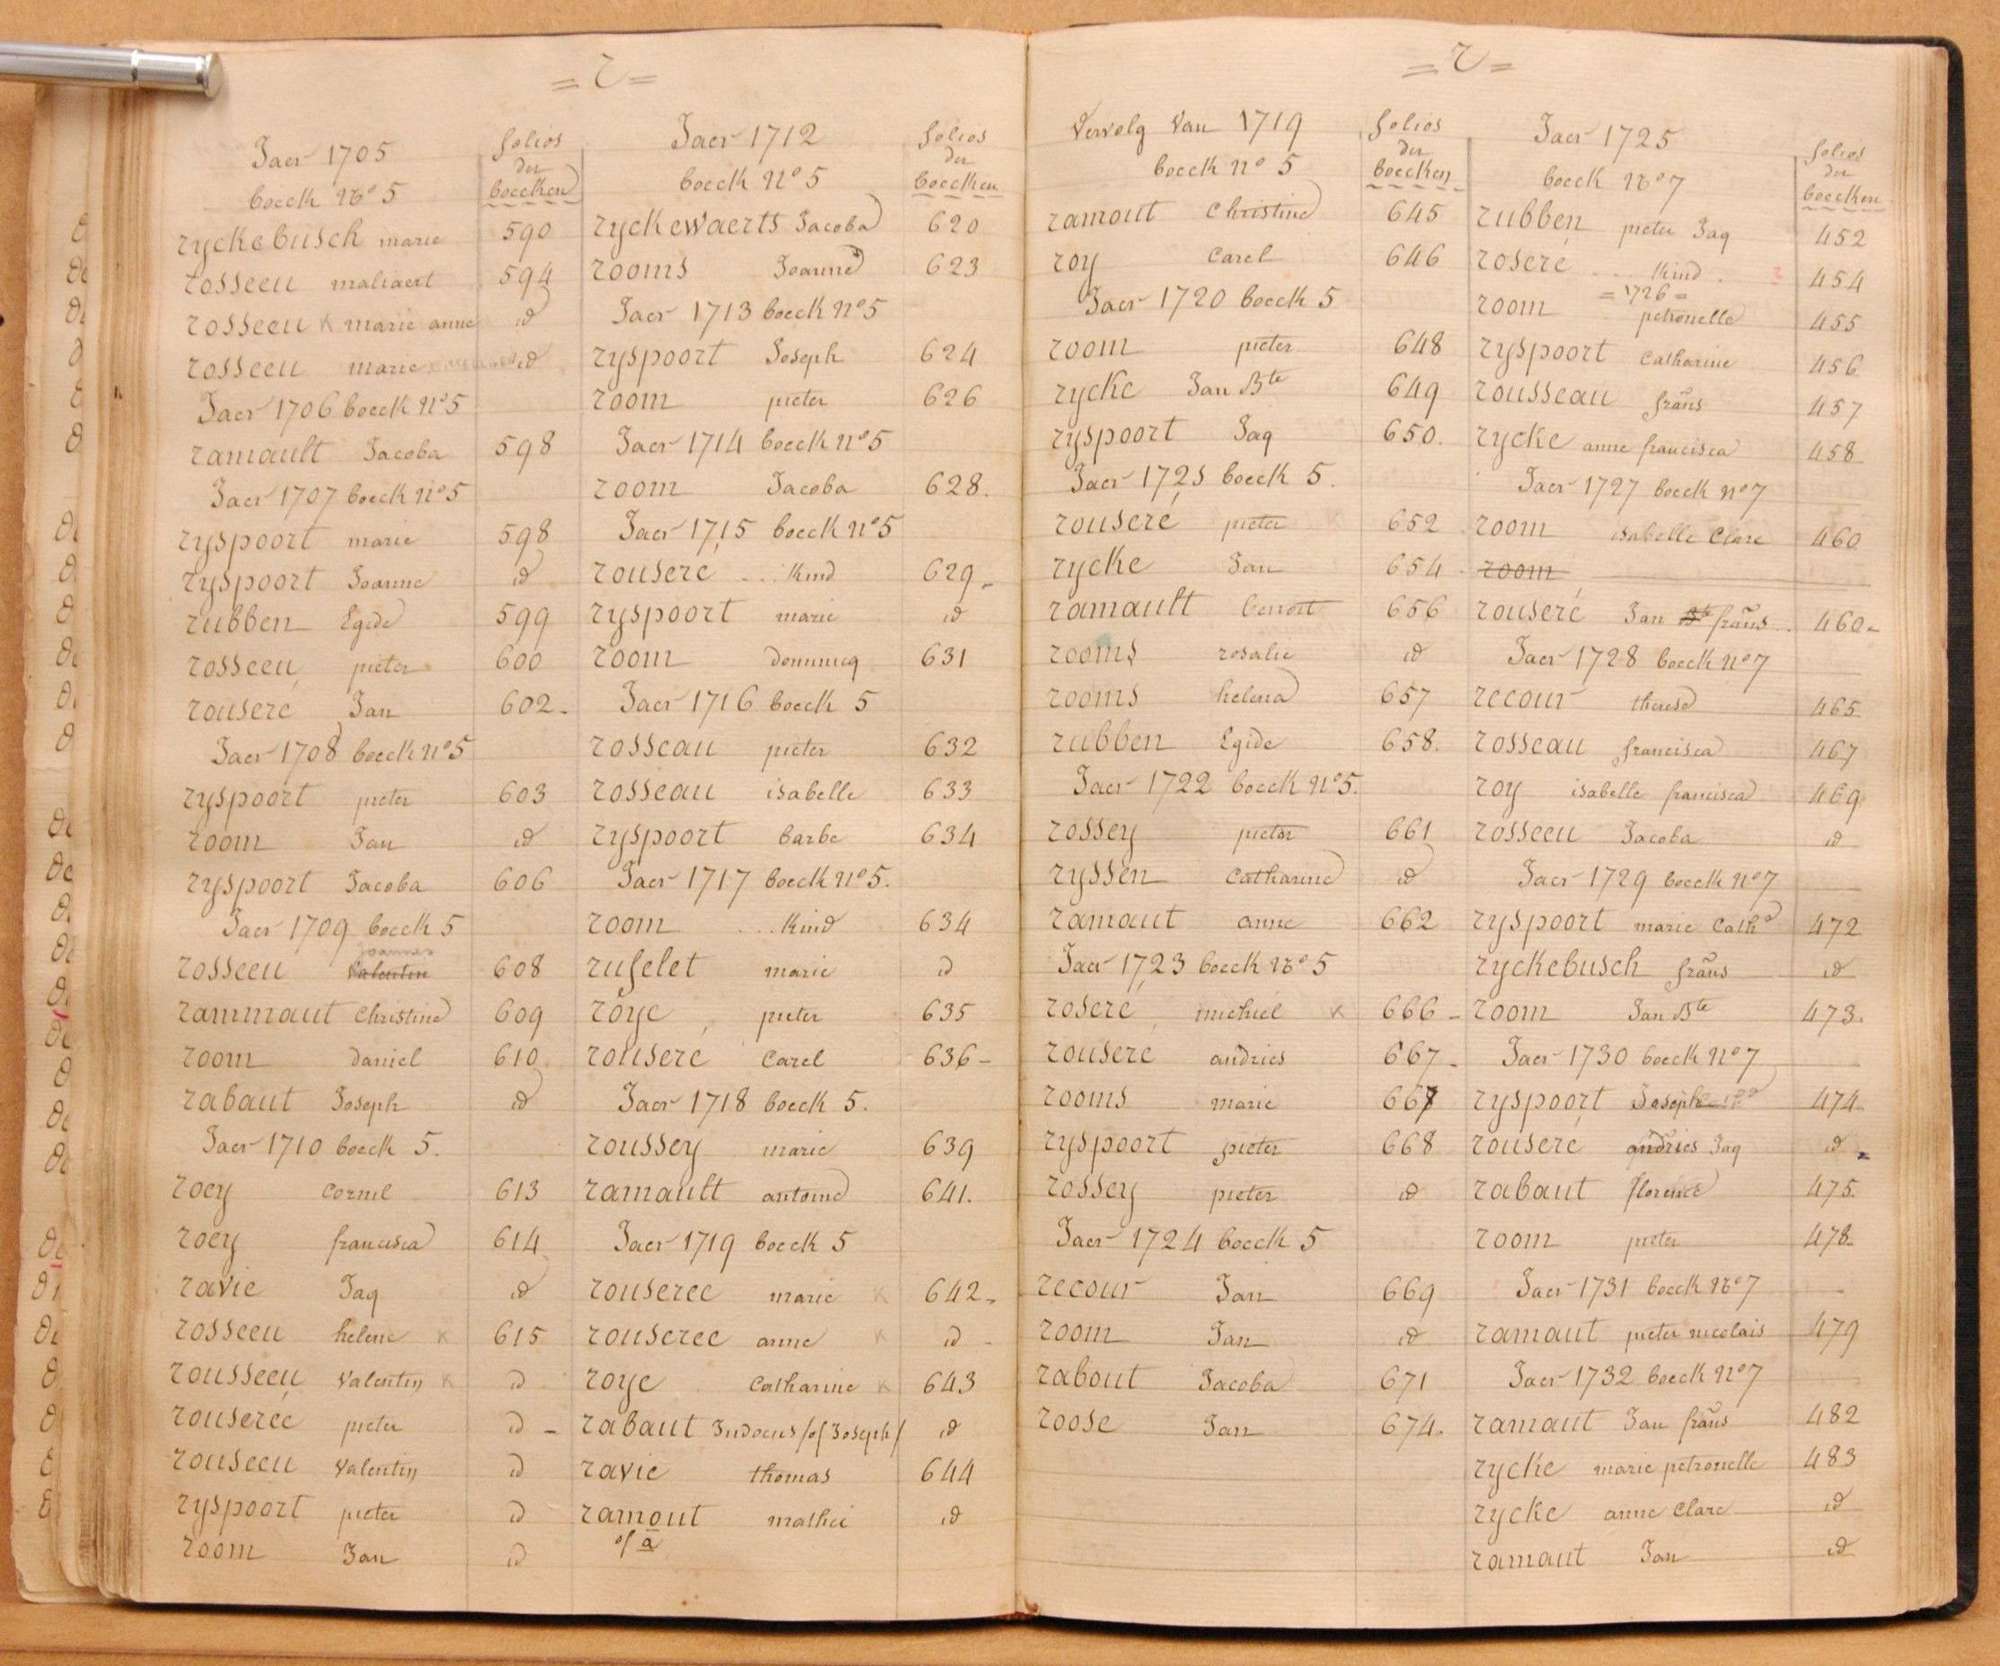 = r =
Jaer 1705
boeck No 5
folios
der
boecken
ryckebusch marie 590
rosseeu maliaert 594
rosseeu K marie anne id
rosseeu marie id
Jaer 1706 boeck No 5
ramault Jacoba 598
Jaer 1707 boeck No 5
ryspoort marie 598
ryspoort Joanne id
rubben Egide 599
rosseeu pieter 600
rouseré Jan 602 -
Jaer 1708 boeck No 5
ryspoort pieter 603
room Jan id
ryspoort Jacoba 606
Jaer 1709 boeck 5
rosseeu Valentin 608
rammaut Christine 609
room daniel 610
rabaut Joseph id
Jaer 1710 boeck 5.
roey Cornil 613
roey francisca 614
ravie Jaq id
rosseeu helene K 615
rousseeu Valentin K id
rouseree pieter id -
rouseeu Valentin id
ryspoort pieter id
room Jan id
Jaer 1712
boeck No 5
folios
der
boecken
ryckewaerts Jacoba 620
rooms Joanne 623
Jaer 1713 boeck No 5
ryspoort Joseph 624
room pieter 626
Jaer 1714 boeck No 5
room Jacoba 628.
Jaer 1715 boeck No 5
rouseré ... Kind 629 -
ryspoort marie id
room dominicq 631
Jaer 1716 boeck 5
rosseau pieter 632
rosseau isabelle 633
ryspoort barbe 634
Jaer 1717 boeck No 5.
room ... Kind 634
rufelet marie id
roye pieter 635
rouseré Carel 636 -
Jaer 1718 boeck 5.
roussey marie 639
ramault antoine 641.
Jaer 1719 boeck 5
rouseree marie K 642 -
rouseree anne K id -
roye Catharine K 643
rabaut Judocus /of Joseph/ id
ravie thomas 644
ramout mathie id
of a
= r =
Vervolg Van 1719
boeck No 5
folios
der
boecken
ramout Christine 645
roy Carel 646
Jaer 1720 boeck 5
room pieter 648
rycke Jan Bte 649
ryspoort Jaq 650.
Jaer 1721 boeck 5.
rouseré pieter K 652
rycke Jan 654
ramault benoit 656
rooms rosalie id
rooms helena 657
rubben Egide 658.
Jaer 1722 boeck No 5.
rossey pieter 661
ryssen Catharine id
ramaut anne 662
Jaer 1723 boeck No 5
roseré michiel K 666 -
rouseré andries 667 -
rooms marie 667
ryspoort pieter 668
rossey pieter id
Jaer 1724 boeck 5
recour Jan 669
room Jan id
rabout Jacoba 671
roose Jan 674.
Jaer 1725
boeck No 7
folios
der
boecken
rubben pieter Jaq 452
roseré ... Kind 454
= 1726 =
room petronelle 455
ryspoort Catharine 456
rousseau frans 457
rycke anne francisca 458
Jaer 1727 boeck No 7
room isabelle Clare 460
room
rouseré Jan Bte frans 460 -
Jaer 1728 boeck No 7
recour therese 465
rosseau francisca 467
roy isabelle francisca 469
rosseeu Jacoba id
Jaer 1729 boeck No 7
ryspoort marie Cath 472
ryckebusch frans id
room Jan Bte 473.
Jaer 1730 boeck No 7
ryspoort Joseph 474
rouseré andries Jaq id -
rabaut florence 475.
room pieter 478.
Jaer 1731 boeck No 7
ramaut pieter nicolais 479
Jaer 1732 boeck No 7
ramaut Jan frans 482
rycke marie petronelle 483
rycke anne Clare id
ramaut Jan id